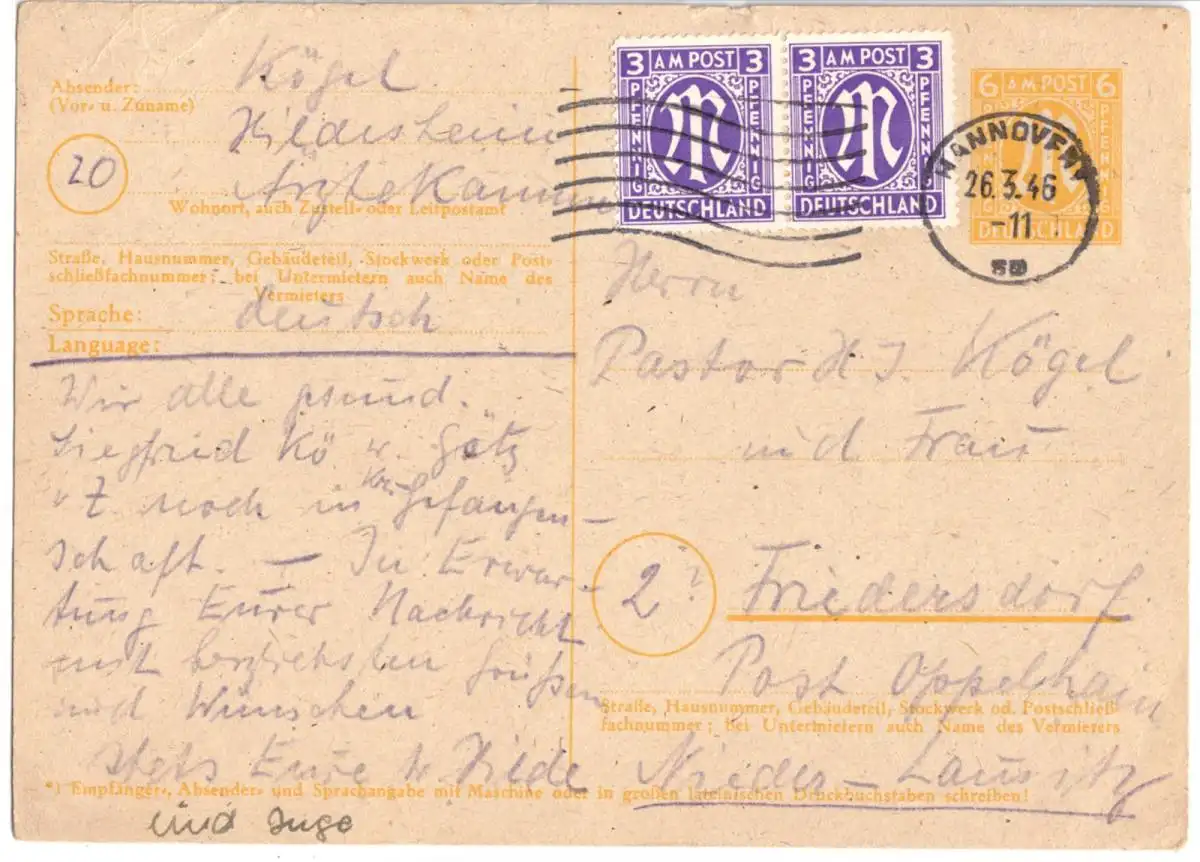 Absender:
(Vor- u. Zuname)
Kögel
Hildesheim
20
Wohnort, auch Zustell- oder Leitpostamt
Straße, Hausnummer, Gebäudeteil, Stockwerk oder Post-
schließfachnummer; bei Untermietern auch Name des
Vermieters
Sprache: deutsch
Language:
Wir alle gesund.
Siegfried Kö u. Götz
Z. noch in Kr. Gefangen-
schaft. – In Erwar-
tung Eurer Nachricht
mit herzlichsten Grüßen
und Wünschen
Stets Eure Hilde
und Inge
3 AM POST 3
PFENNIG PFENNIG
DEUTSCHLAND
3 AM POST 3
PFENNIG PFENNIG
DEUTSCHLAND
6 AM POST 6
PFENNIG
DEUTSCHLAND
HANNOVER 1
26.3.46
-11
Herrn
Pastor H J. Kögel
und Frau
2
Friedersdorf
Post Oppelhain
Straße, Hausnummer, Gebäudeteil, Stockwerk od. Postschließ-
fachnummer; bei Untermietern auch Name des Vermieters
Nieder-Lausitz
*) Empfänger-, Absender- und Sprachangabe mit Maschine oder in großen lateinischen Druckbuchstaben schreiben!